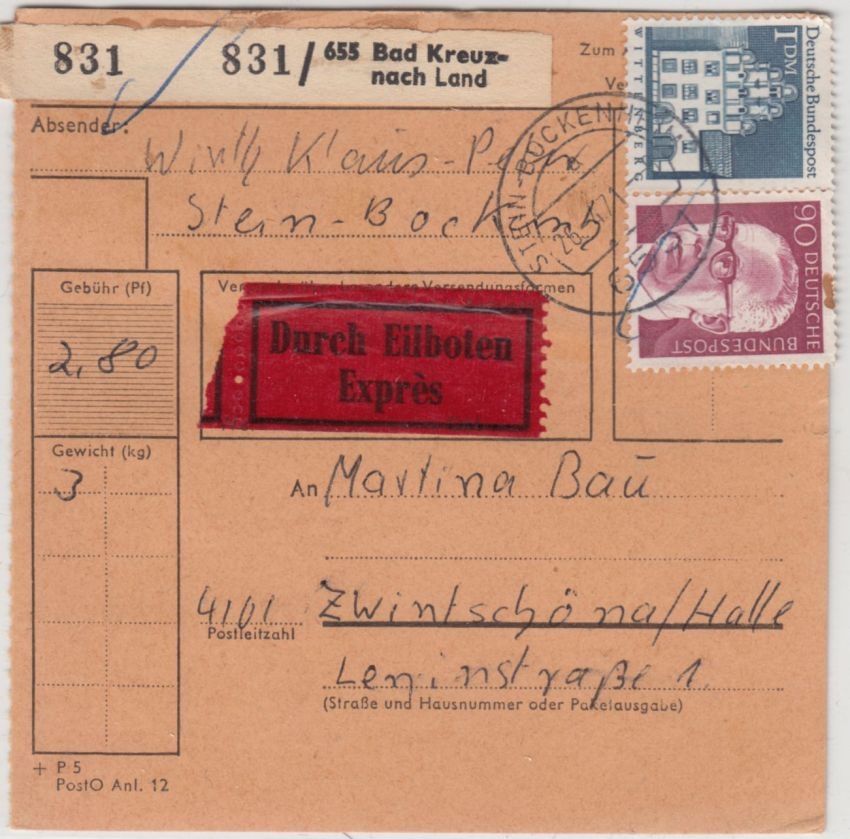 831 831/655 Bad Kreuz-
nach Land
Zum
Absender:
Wirth Klaus-
Stein-Bockenh
STEIN-BOCKENHEIM
6551
1 DM Deutsche Bundespost
WITTENBERG
90 DEUTSCHE
BUNDESPOST
Gebühr (Pf)
2,80
Durch Eilboten
Exprès
Gewicht (kg)
3
An Martina Bau
4101 Zwintschöna/Halle
Postleitzahl
Leninstraße 1
(Straße und Hausnummer oder Paketausgabe)
+ P 5
PostO Anl. 12